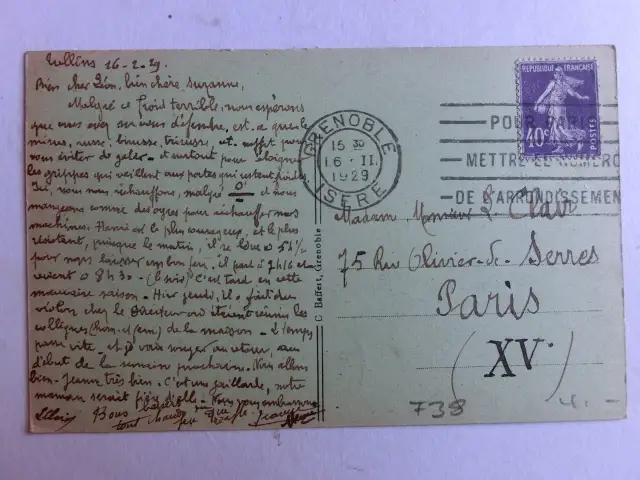 Tullins 16-2.29.
Bien cher Léon, bien chère Suzanne,
Malgré ce froid terrible, nous espérons
que vous
vous éviter de geler - et surtout pour éloigner
les grippes qui veillent aux portes qui restent
Ici, nous nous réchauffons, malgré 0° et nous
mangeons comme des ogres pour réchauffer nos
machines. Henri est le plus courageux, et le plus
résistant, puisque le matin, il se lève à 5h½
pour nous laisser un bon feu, il part à 7h16 et
revient à 8h30 - (le soir) C'est tard en cette
mauvaise saison - Hier jeudi, il a fait du
violon chez le Directeur où étaient réunis les
collègues (hom. et fem.) de la maison - Le temps
passe vite, et je vais songer au retour, au
début de la semaine prochaine. Nous allons
bien - Jeanne très bien. C'est une gaillarde, notre
maman serait fière d'elle - Nous vous embrassons
Bons baisers
tout chauds
C. Baffert, Grenoble
GRENOBLE
15 30
16 - II
1929
ISÈRE
POUR PARIS
METTRE LE NUMERO
DE L'ARRONDISSEMENT
REPUBLIQUE FRANÇAISE
40c
POSTES
Madame, Monsieur Le Clair
75 Rue Olivier-de-Serres
Paris
(XV)
738
4.-